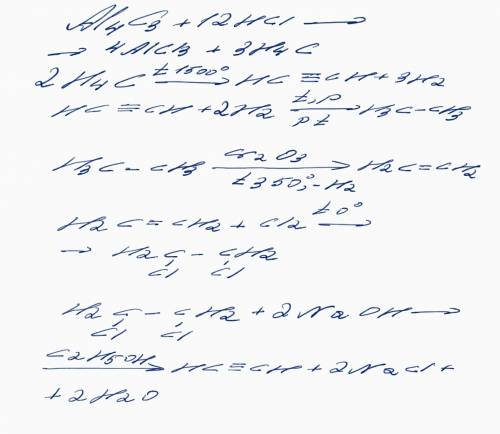 Al4C3 + 12HCl →
→ 4AlCl3 + 3H4C
2H4C t 1500° → HC ≡ CH + 3H2
HC ≡ CH + 2H2 t, p → pt H3C - CH3
H3C - CH3 Cr2O3 → t 350°, -H2 H2C = CH2
H2C = CH2 + Cl2 t 0° →
→ H2C - CH2
Cl Cl
H2C - CH2 + 2NaOH →
Cl Cl
C2H5OH → HC ≡ CH + 2NaCl +
+ 2H2O